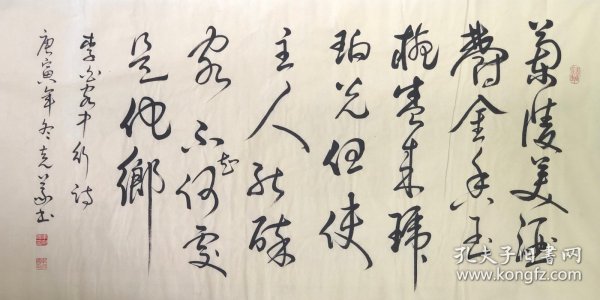 蘭陵美酒
鬱金香玉
椀盛來琥
珀光但使
主人能醉
客不知何處
是他鄉
李白客中行詩
庚寅年冬克義书
孔夫子旧书网
www.kongfz.com